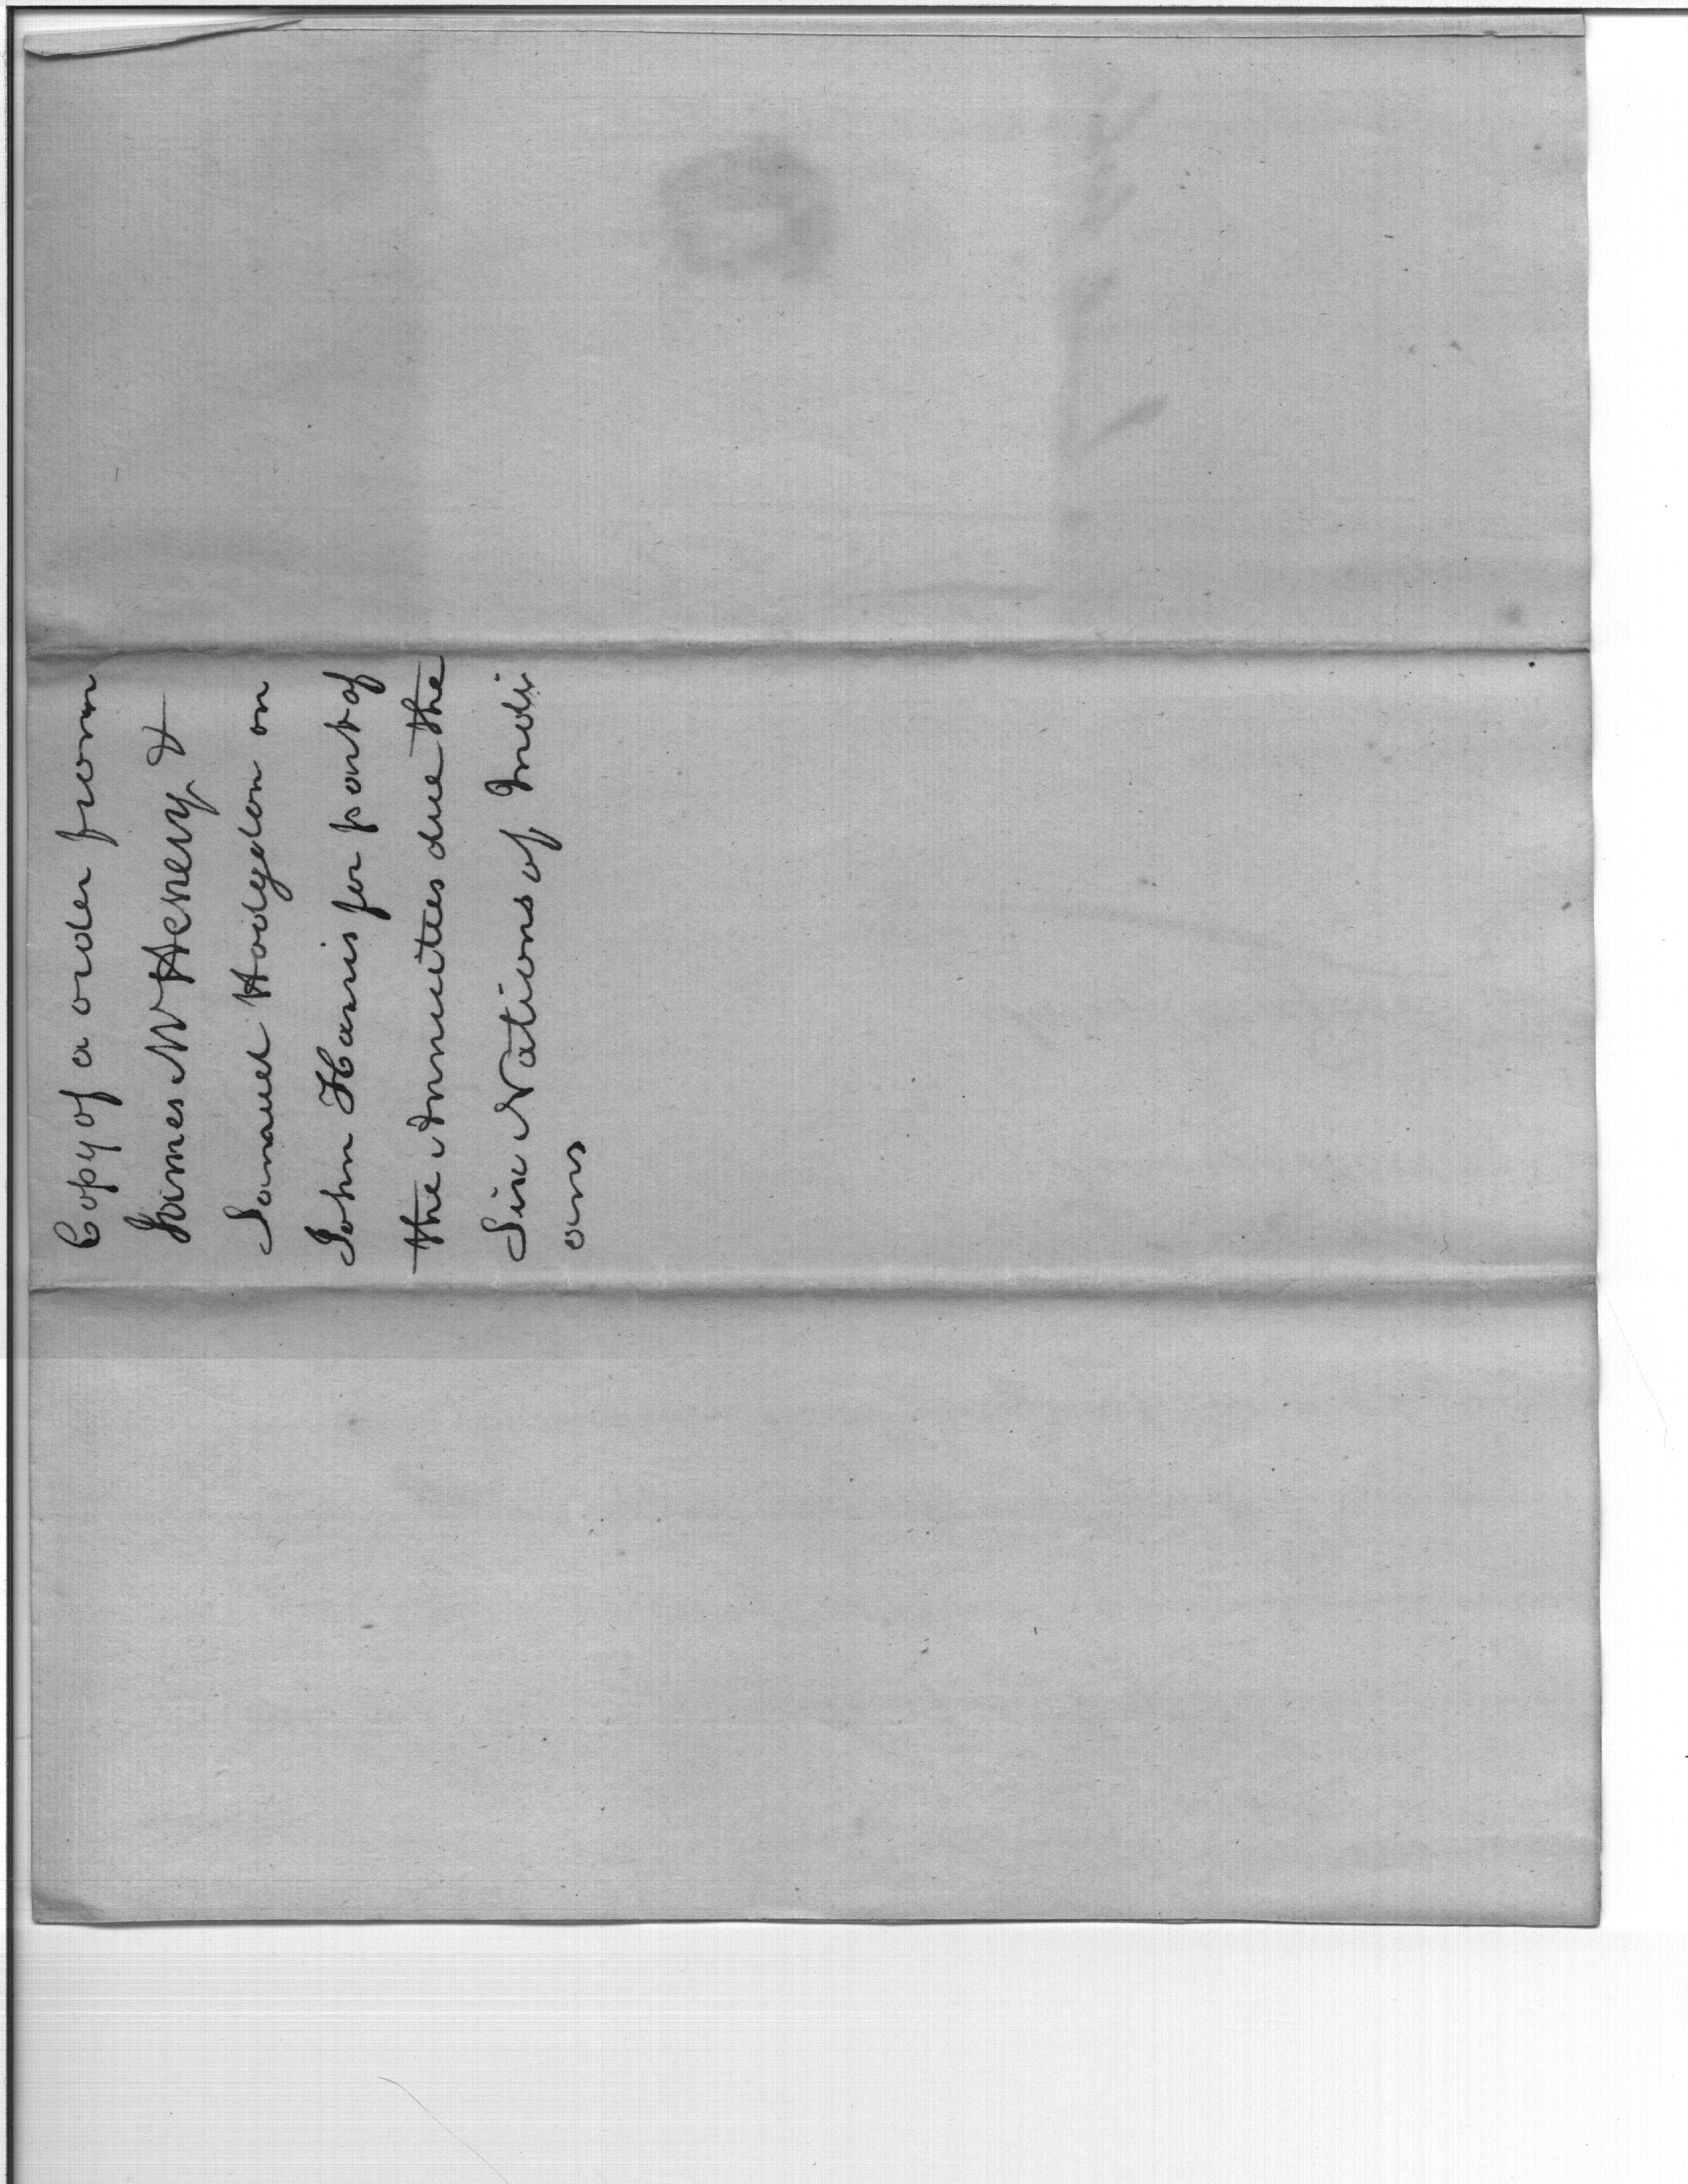 Copy of a order from
James McHenry &
Samuel Hodgdon on
John Harris for part of
the Annuites due the
Six Nations of Indi
ans